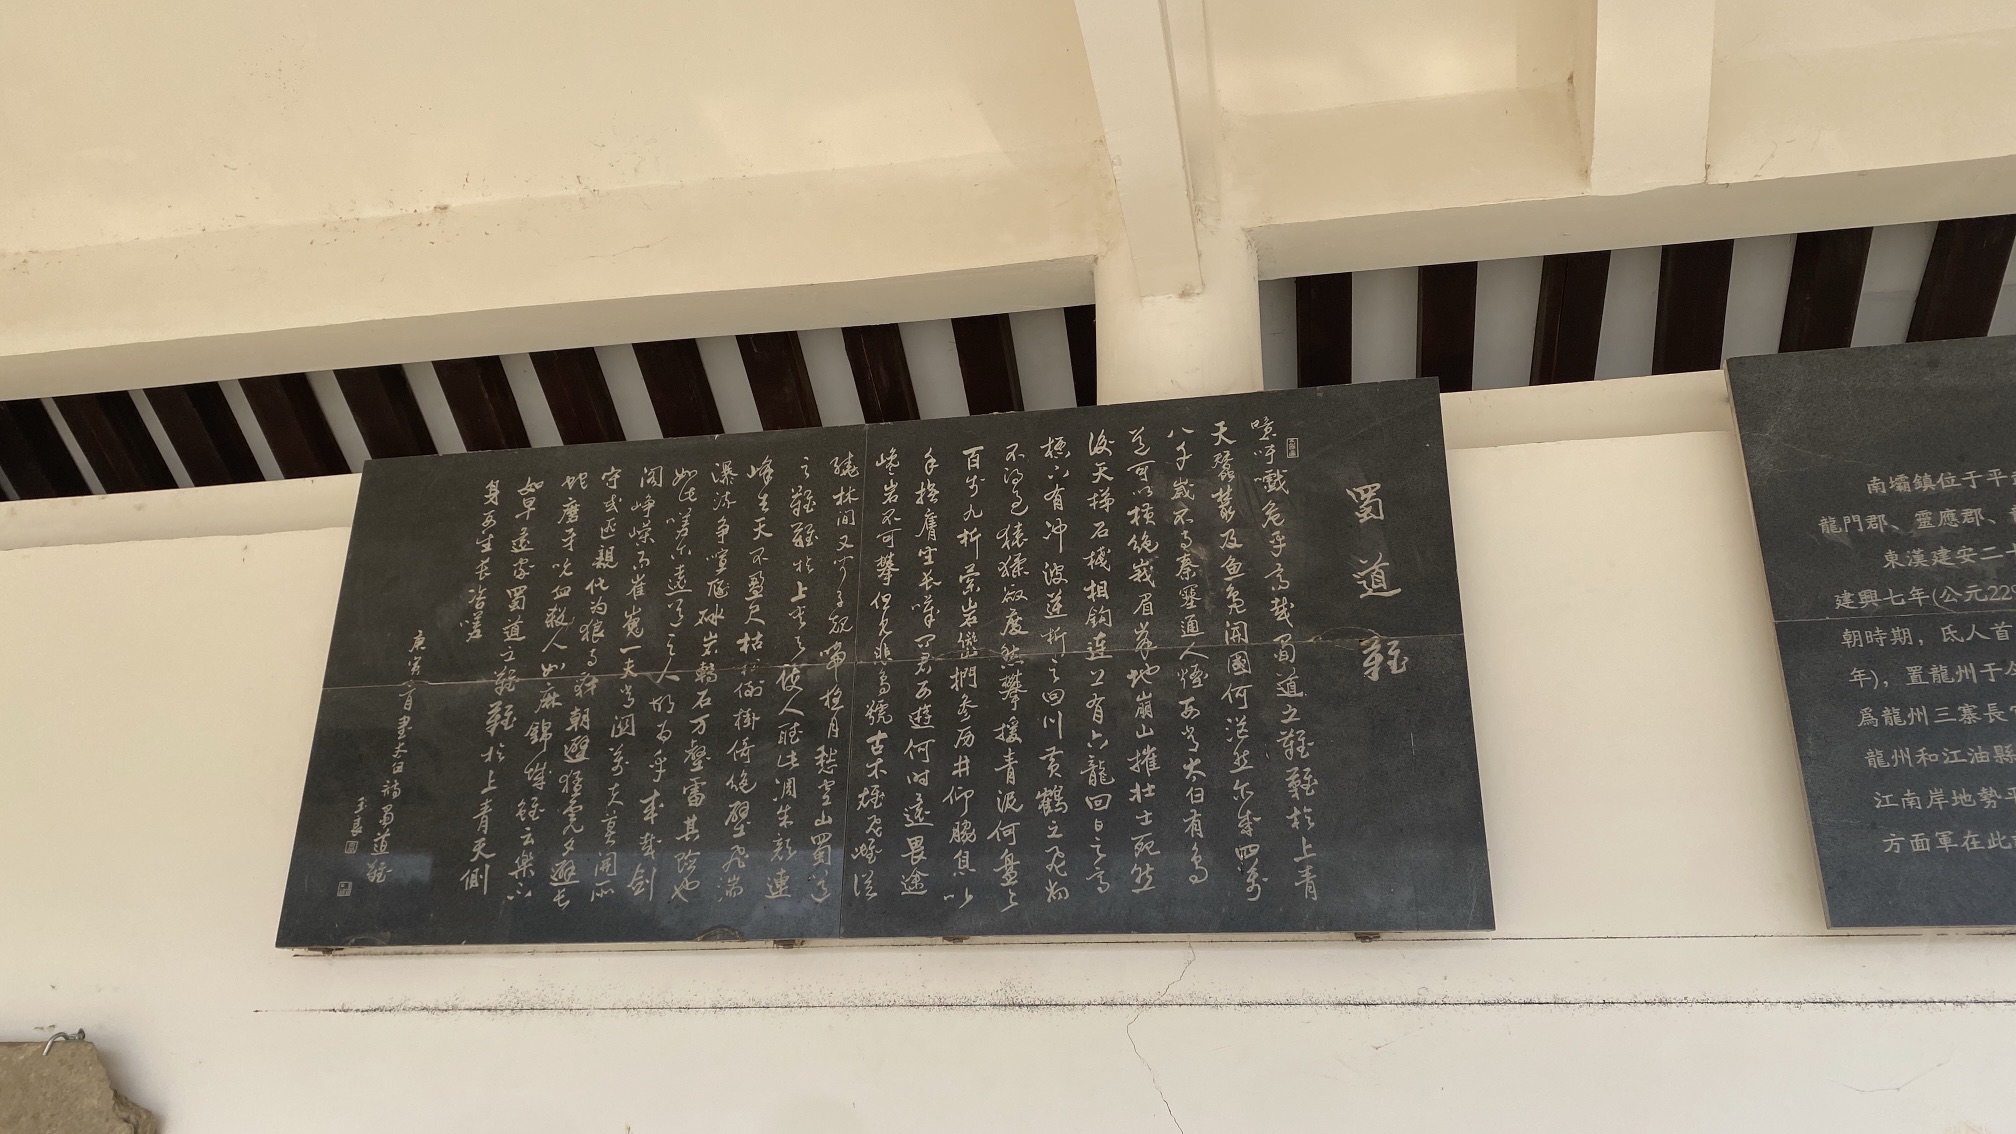 蜀道難
噫吁戲危乎高哉蜀道之難難於上青
天蠶叢及魚鳧開國何茫然尔來四萬
八千歲不与秦塞通人煙西当太白有鸟
道可以横绝峨眉巅地崩山摧壮士死然
後天梯石棧相鉤連上有六龍回日之高
標下有冲波逆折之回川黄鶴之飛尚
不得過猿猱欲度愁攀援青泥何盤盤
百步九折縈岩巒捫参历井仰脇息以
手撫膺坐长嘆问君西遊何时還畏途
巉岩不可攀但见悲鸟號古木雄飛雌從
繞林間又闻子規啼夜月愁空山蜀道
之難難於上青天使人聽此凋朱颜連
峰去天不盈尺枯松倒掛倚绝壁飛湍
瀑流争喧豗砯岩轉石万壑雷其險也
如此嗟尔遠道之人胡为乎來哉剑
阁峥嵘而崔嵬一夫当関萬夫莫開所
守或匪親化为狼与豺朝避猛虎夕避长
蛇磨牙吮血殺人如麻錦城雖云樂不
如早還家蜀道之難難於上青天側
身西望长咨嗟
庚寅 月書太白詩蜀道難
南壩鎮位于平
龍門郡、靈應郡、
東漢建安二
建興七年(公元229
朝時期，氐人首
年)，置龍州于
爲龍州三寨長
龍州和江油縣
江南岸地勢平
方面軍在此